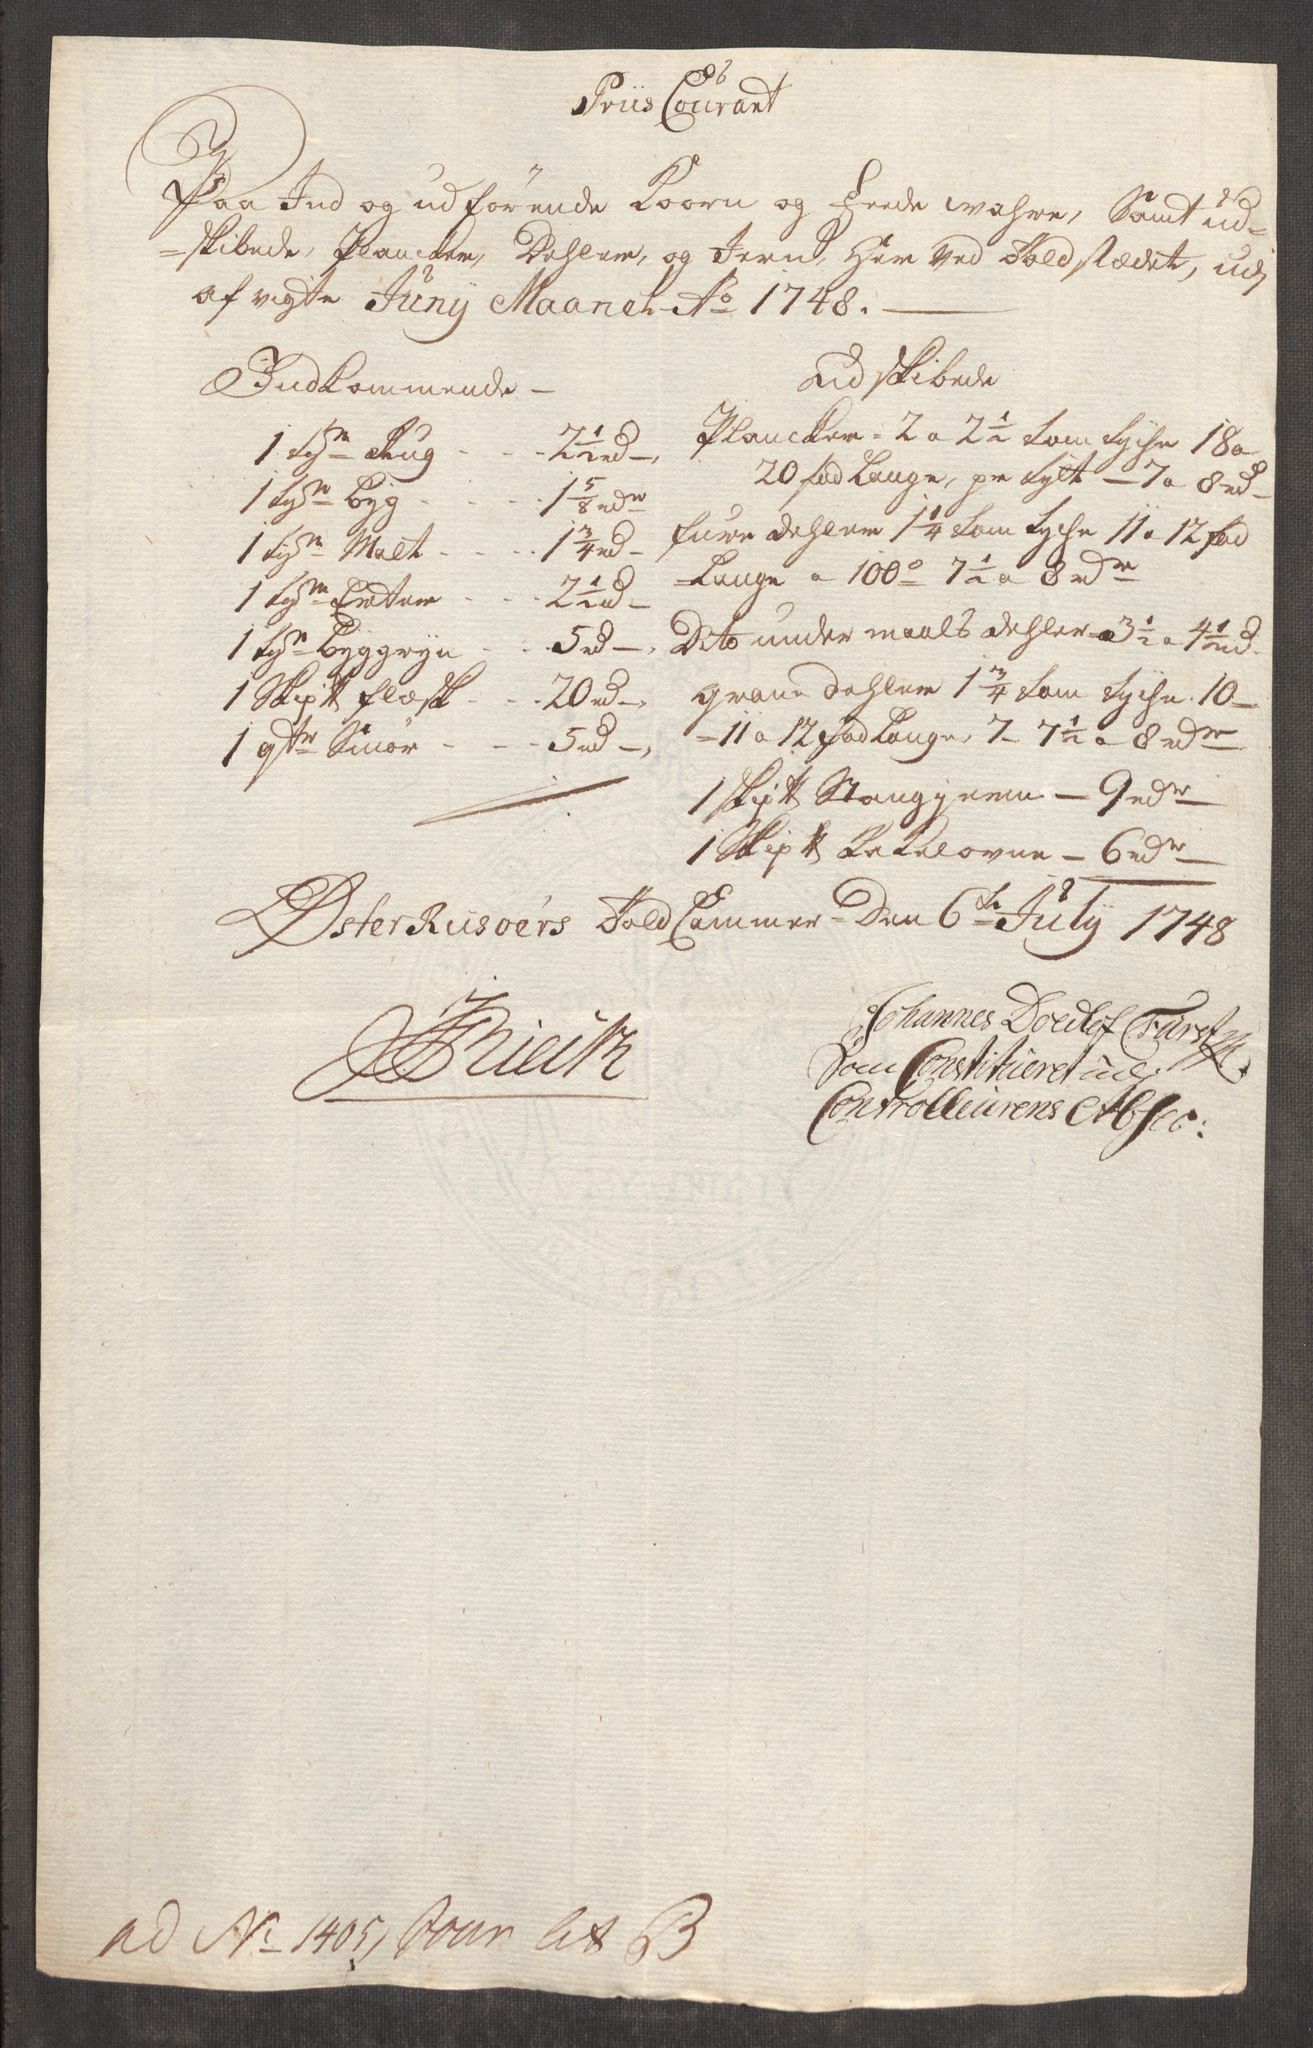 Priis Courant
Paa Ind og udførende Koorn og feede wahre, Samt ud=
=skibede, Plancker, Dehler, og Jern, her ved Toldstædet, udj
afvigte Junij Maanet Ao 1748.
Indkommende
Udskibede
1 tøn Rug - - - 2 1/2 rd
1 tøn Byg - - - 1 5/8 rdr
1 tøn Malt - - - 1 3/4 rd
1 tøn Erter - - - 2 1/2 rd
1 tøn Byggryn - - 5 rd
1 Skip℔ flæsk - - - 20 rd
1 qtr Smør - - - 5 rd
Plancker = 2 a 2 1/2 tom tyche 18 a
20 fod Lange, pr tylt - 7 a 8 rd
furu dehler 1 1/4 tom tyche 11 a 12 fod
Lange a 100de 7 1/2 a 8 rdr
Dito under maals dehler a 3 1/2 a 4 1/2 rd
grane dehler 1 3/4 tom tyche 10
= 11 a 12 fod Lange, 7 - 7 1/2 a 8 rdr
1 skip℔ Stangjern - 9 rdr
1 Skip℔ Kakelovne - 6 rdr
Østerrusoërs Told Cammer = Den 6te July 1748
Johannes Doedlof Fürst
Som Constitueret udj
Controlleurens Absec:
ad No 1405, Vour lit B